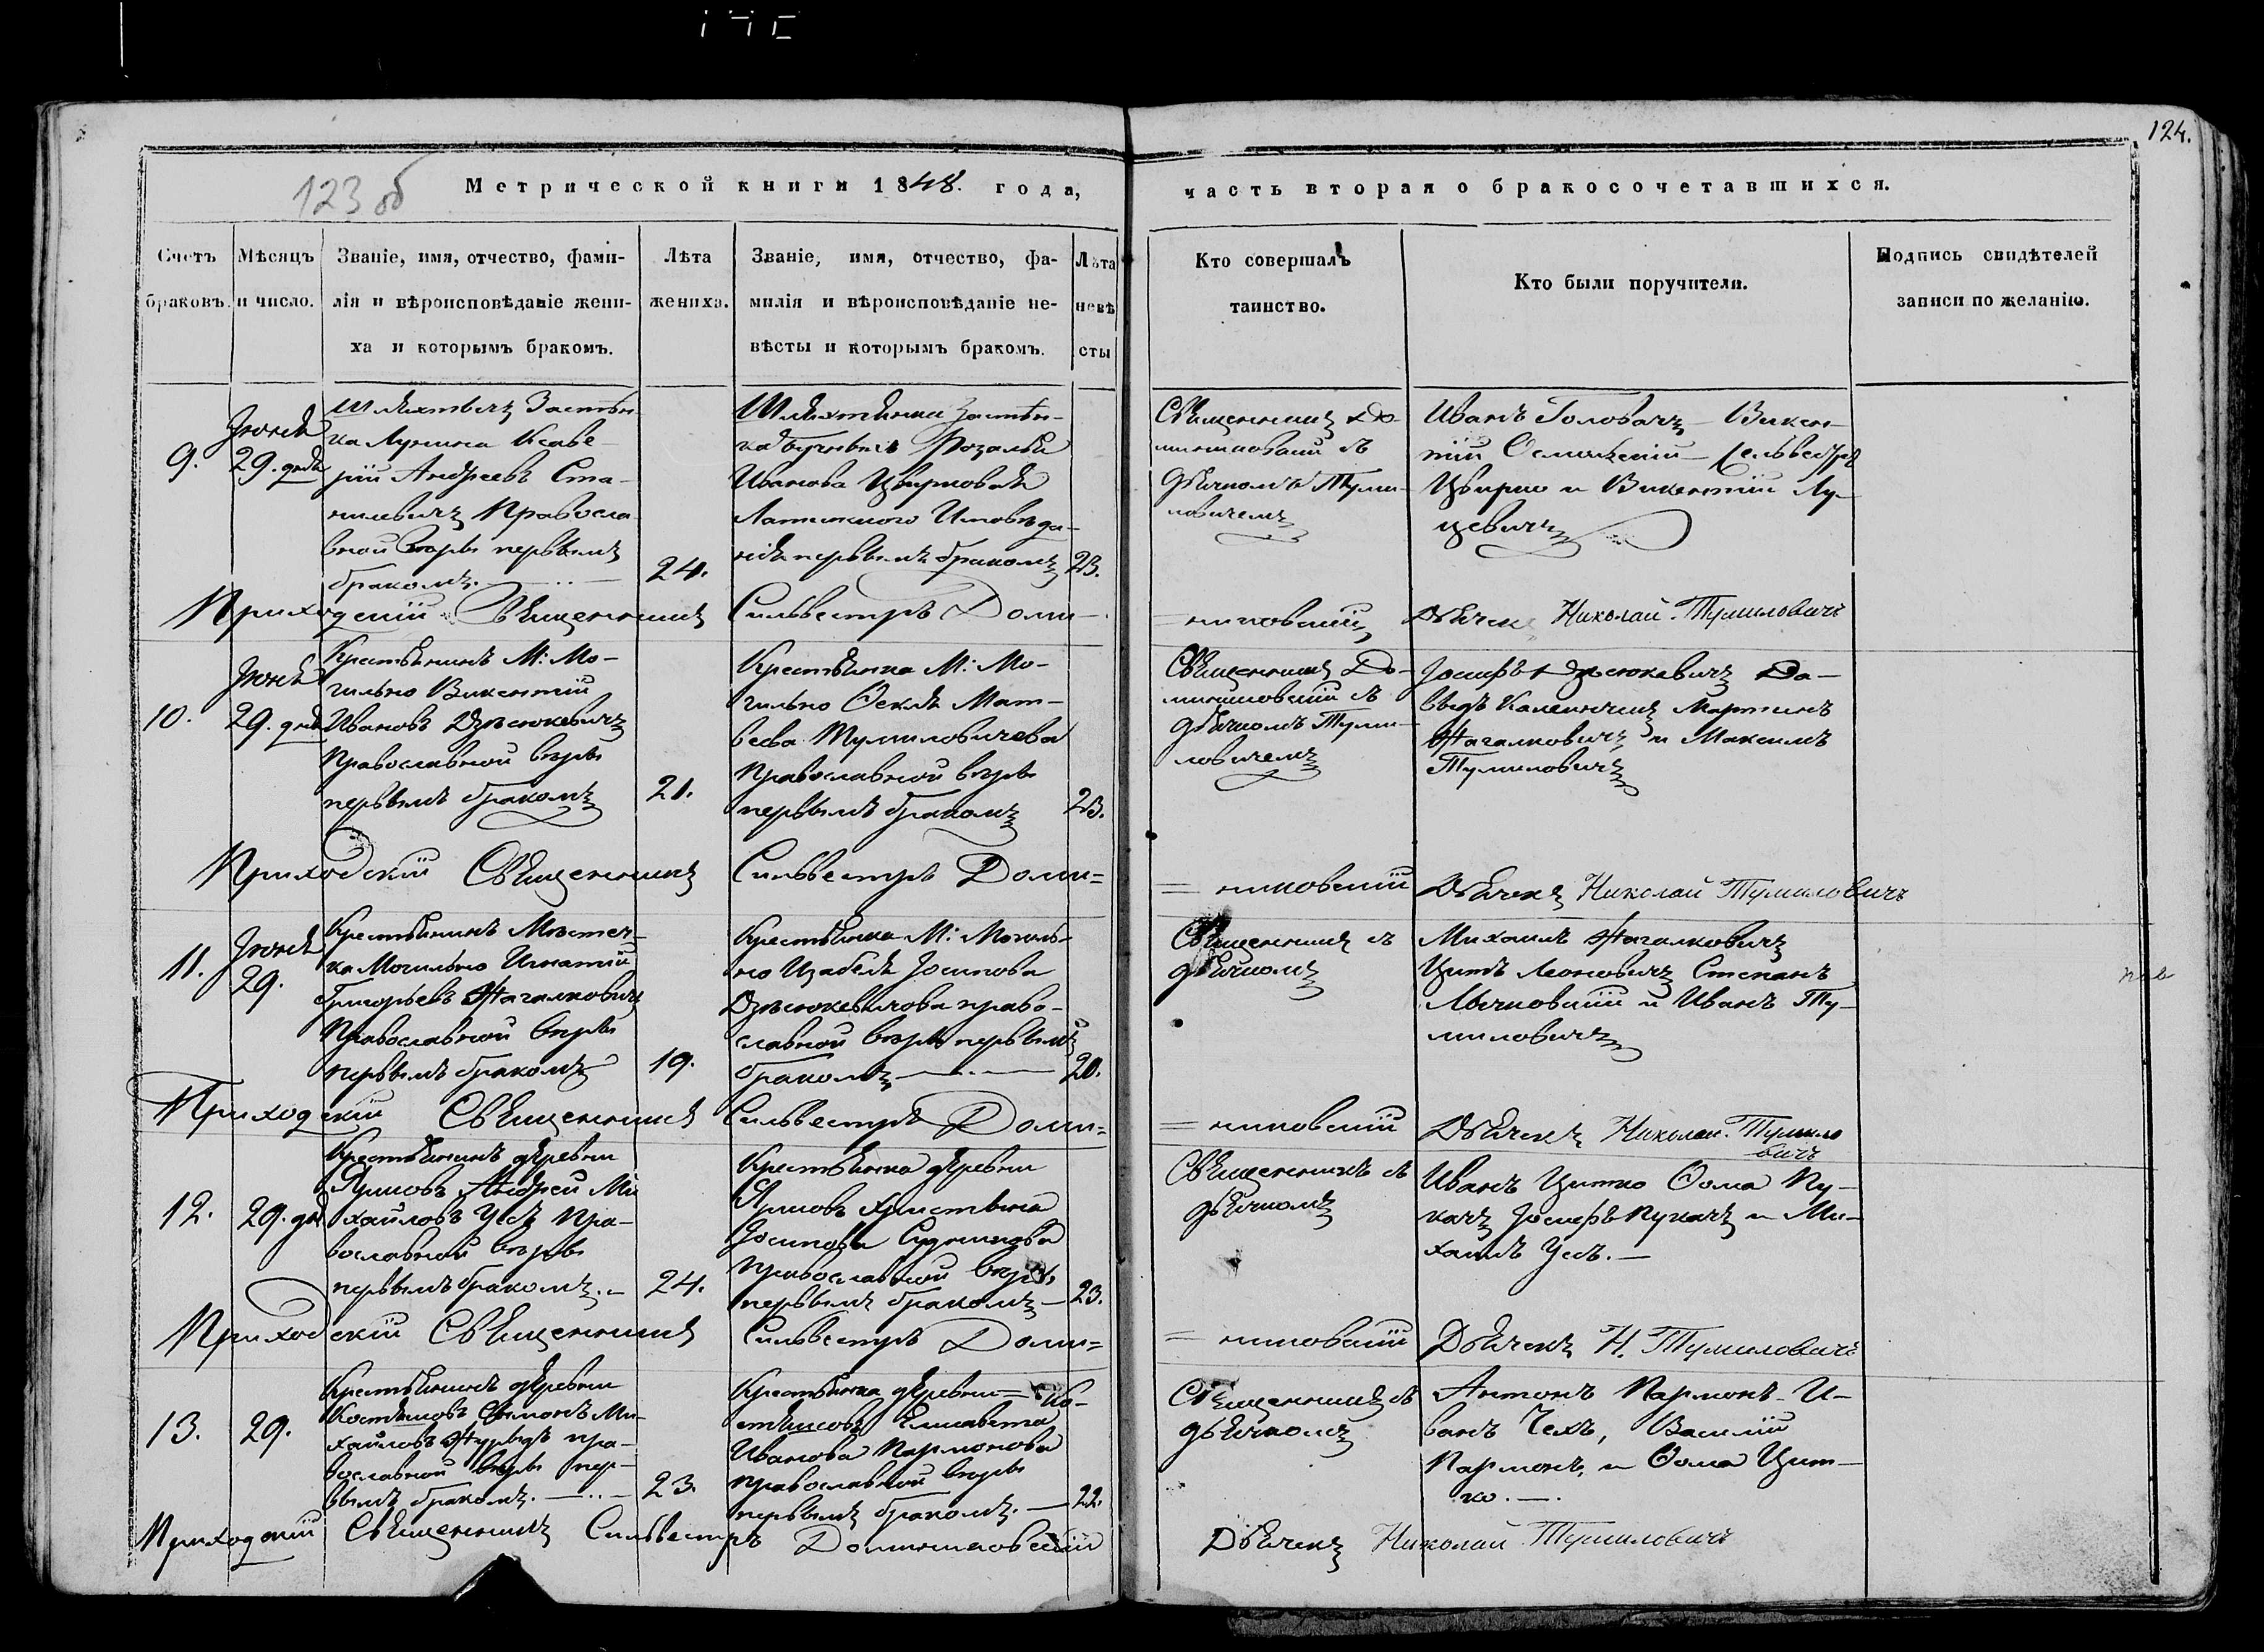 124.
123 об
Метрической книги 1848. года,
часть вторая о бракосочетавшихся.
Счетъ браковъ.
Мѣсяцъ и число.
Званіе, имя, отчество, фами-
лія и вѣроисповѣданіе жени-
ха и которымъ бракомъ.
Лѣта
жениха.
Званіе, имя, отчество, фа-
милія и вѣроисповѣданіе не-
вѣсты и которымъ бракомъ.
Лѣта
невѣ
сты
Кто совершалъ
таинство.
Кто были поручители.
Подпись свидѣтелей
записи по желанію.
9.
Іюня
29. дня
Шляхтичъ Застѣн
ка Лучина Ксаве-
рій Андреевъ Ста-
нилевичъ Правосла
вной вѣры первымъ
бракомъ.
24.
Шляхтянка Застѣн-
ка Розалія
Иванова
Латинского Исповѣда-
нія первымъ бракомъ
23.
Священникъ До-
миниковскій съ
дьячкомъ Туми-
ловичемъ
Иванъ Головачъ Викен-
тій Сельвестръ
Цвирко и Викентій Лу-
цевичъ
Приходскій Священникъ Сильвестръ Доми-
никовскій Дьячекъ Николай Тумиловичъ
10.
Іюня
29. дня
Крестьянинъ М: Мо-
гильно Викентій
Ивановъ Дзѣсюкевичъ
Православной вѣры
первымъ бракомъ
21.
Крестьянка М: Мо-
гильно Ѳекля Мат-
веева Тумиловичева
Православной вѣры
первымъ бракомъ
23.
Священникъ До-
миниковскій съ
дьячкомъ Туми-
ловичемъ
Іосифъ Дзѣсюкевичъ Да-
выдъ Каленикъ Мартинъ
Жагалковичъ и Максимъ
Тумиловичъ
Приходскій Священникъ Сильвестръ Доми=
= никовскій Дьячекъ Николай Тумиловичъ
11.
Іюня
29.
Крестьянинъ Мѣстеч-
ка Могильно Игнатій
Григорьевъ Жагалковичъ
Православной вѣры
первымъ бракомъ
19.
Крестьянка М: Могиль-
но Изабеля Іосипова
Дзѣсюкевичова право-
славной вѣры первымъ
бракомъ
20.
Священникъ съ
дьячкомъ
Михаилъ Жагалковичъ
Титъ Леоновичъ Степанъ
Лычковскій и Иванъ Ту-
миловичъ
Приходскій Священникъ Сильвестръ Доми=
= никовскій Дьячекъ Николай Тумило
вичъ
12.
29. дня
Крестьянинъ деревни
Андрей Ми
хайловъ Усъ Пра-
вославной вѣры
первымъ бракомъ.
24.
Крестьянка деревни
Христина
Іосипова
Православной вѣры
первымъ бракомъ
23.
Священникъ съ
дьячкомъ
Иванъ Цитко Ѳома Пу-
качъ Іосифъ Пукачъ и Ми-
хаилъ Усъ.
Приходскій Священникъ Сильвестръ Доми=
= никовскій Дьячекъ Н. Тумиловичъ
13.
29.
Крестьянинъ деревни
Костешовъ Сымонъ Ми-
хайловъ пра-
вославной вѣры пер-
вымъ бракомъ.
23.
Крестьянка деревни = Ко-
стешовъ Елисавета
Иванова Пармонова
православной вѣры
первымъ бракомъ.
22.
Священникъ съ
дьячкомъ
Антонъ Пармонъ И-
ванъ Чехъ, Василій
Пармонъ, и Ѳома Цит-
ко.
Приходскій Священникъ Сильвестръ Доминиковскій
Дьячекъ Николай Тумиловичъ